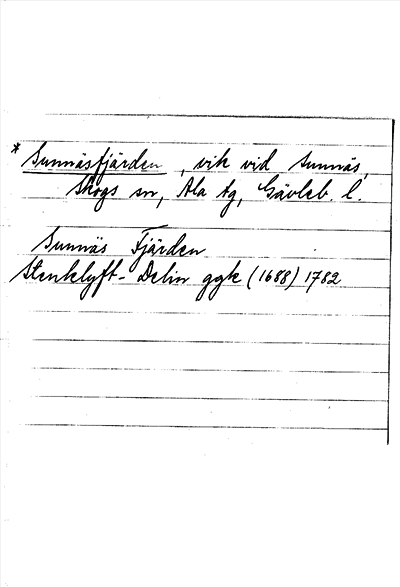 * Sunnäsfjärden, vik vid Sunnäs,
Skogs sn, Ala tg, Gävleb. l.
Sunnäs Fjärden
Stenklyft-Delin ggk (1688) 1782